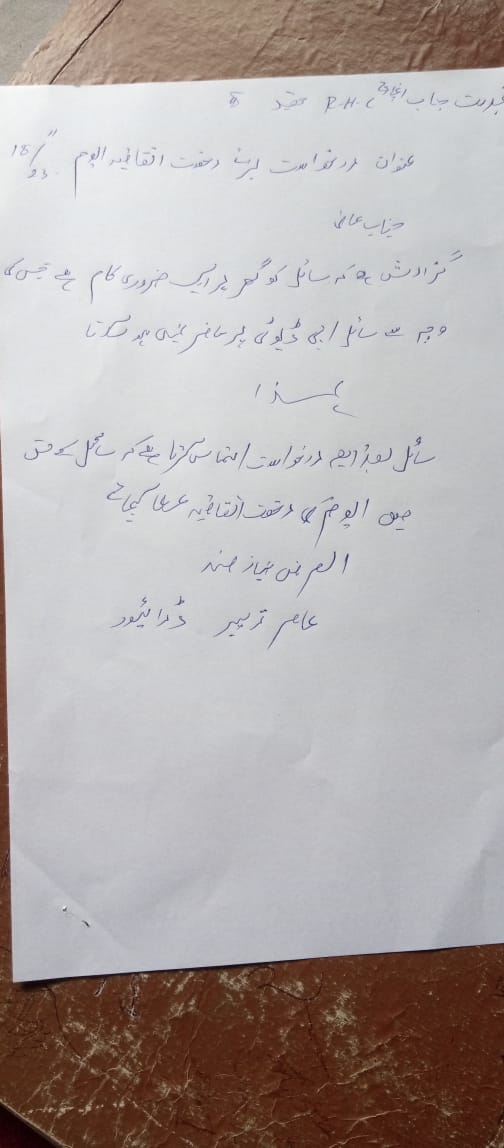 بخدمت جناب انچارج R.H.C
عنوان درخواست برائے رخصت اتفاقیہ الیوم 18/11/23
جناب عالی
گزارش ہے کہ سائل کو گھر پر ایک ضروری کام ہے جس کی
وجہ سے سائل اپنی ڈیوٹی پر حاضر نہیں ہو سکتا
لہذا
سائل بذریعہ درخواست التماس کرتا ہے کہ سائل کے حق
میں الیوم کی رخصت اتفاقیہ عطا کیجائے
العرض نیاز مند
عامر ڈرائیور